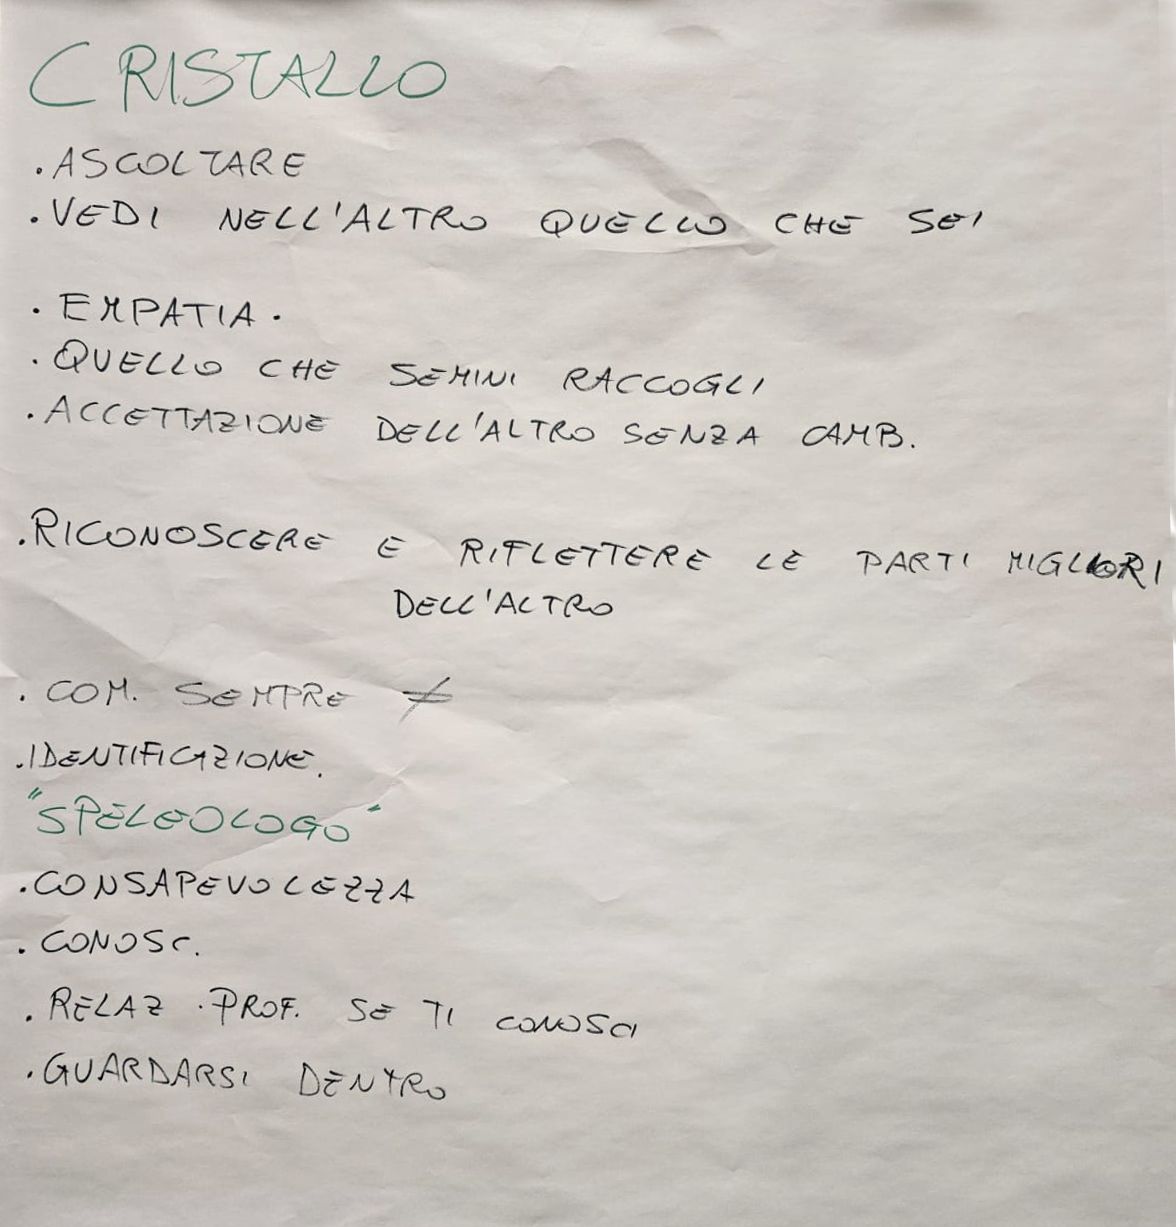 CRISTALLO
. ASCOLTARE
. VEDI NELL'ALTRO QUELLO CHE SEI
. EMPATIA .
. QUELLO CHE SEMINI RACCOGLI
. ACCETTAZIONE DELL'ALTRO SENZA CAMB.
. RICONOSCERE E RIFLETTERE LE PARTI MIGLIORI
DELL'ALTRO
. COM. SEMPRE ≠
. IDENTIFICAZIONE.
"SPELEOLOGO"
. CONSAPEVOLEZZA
. CONOSC.
. RELAZ . PROF. SE TI CONOSCI
. GUARDARSI DENTRO